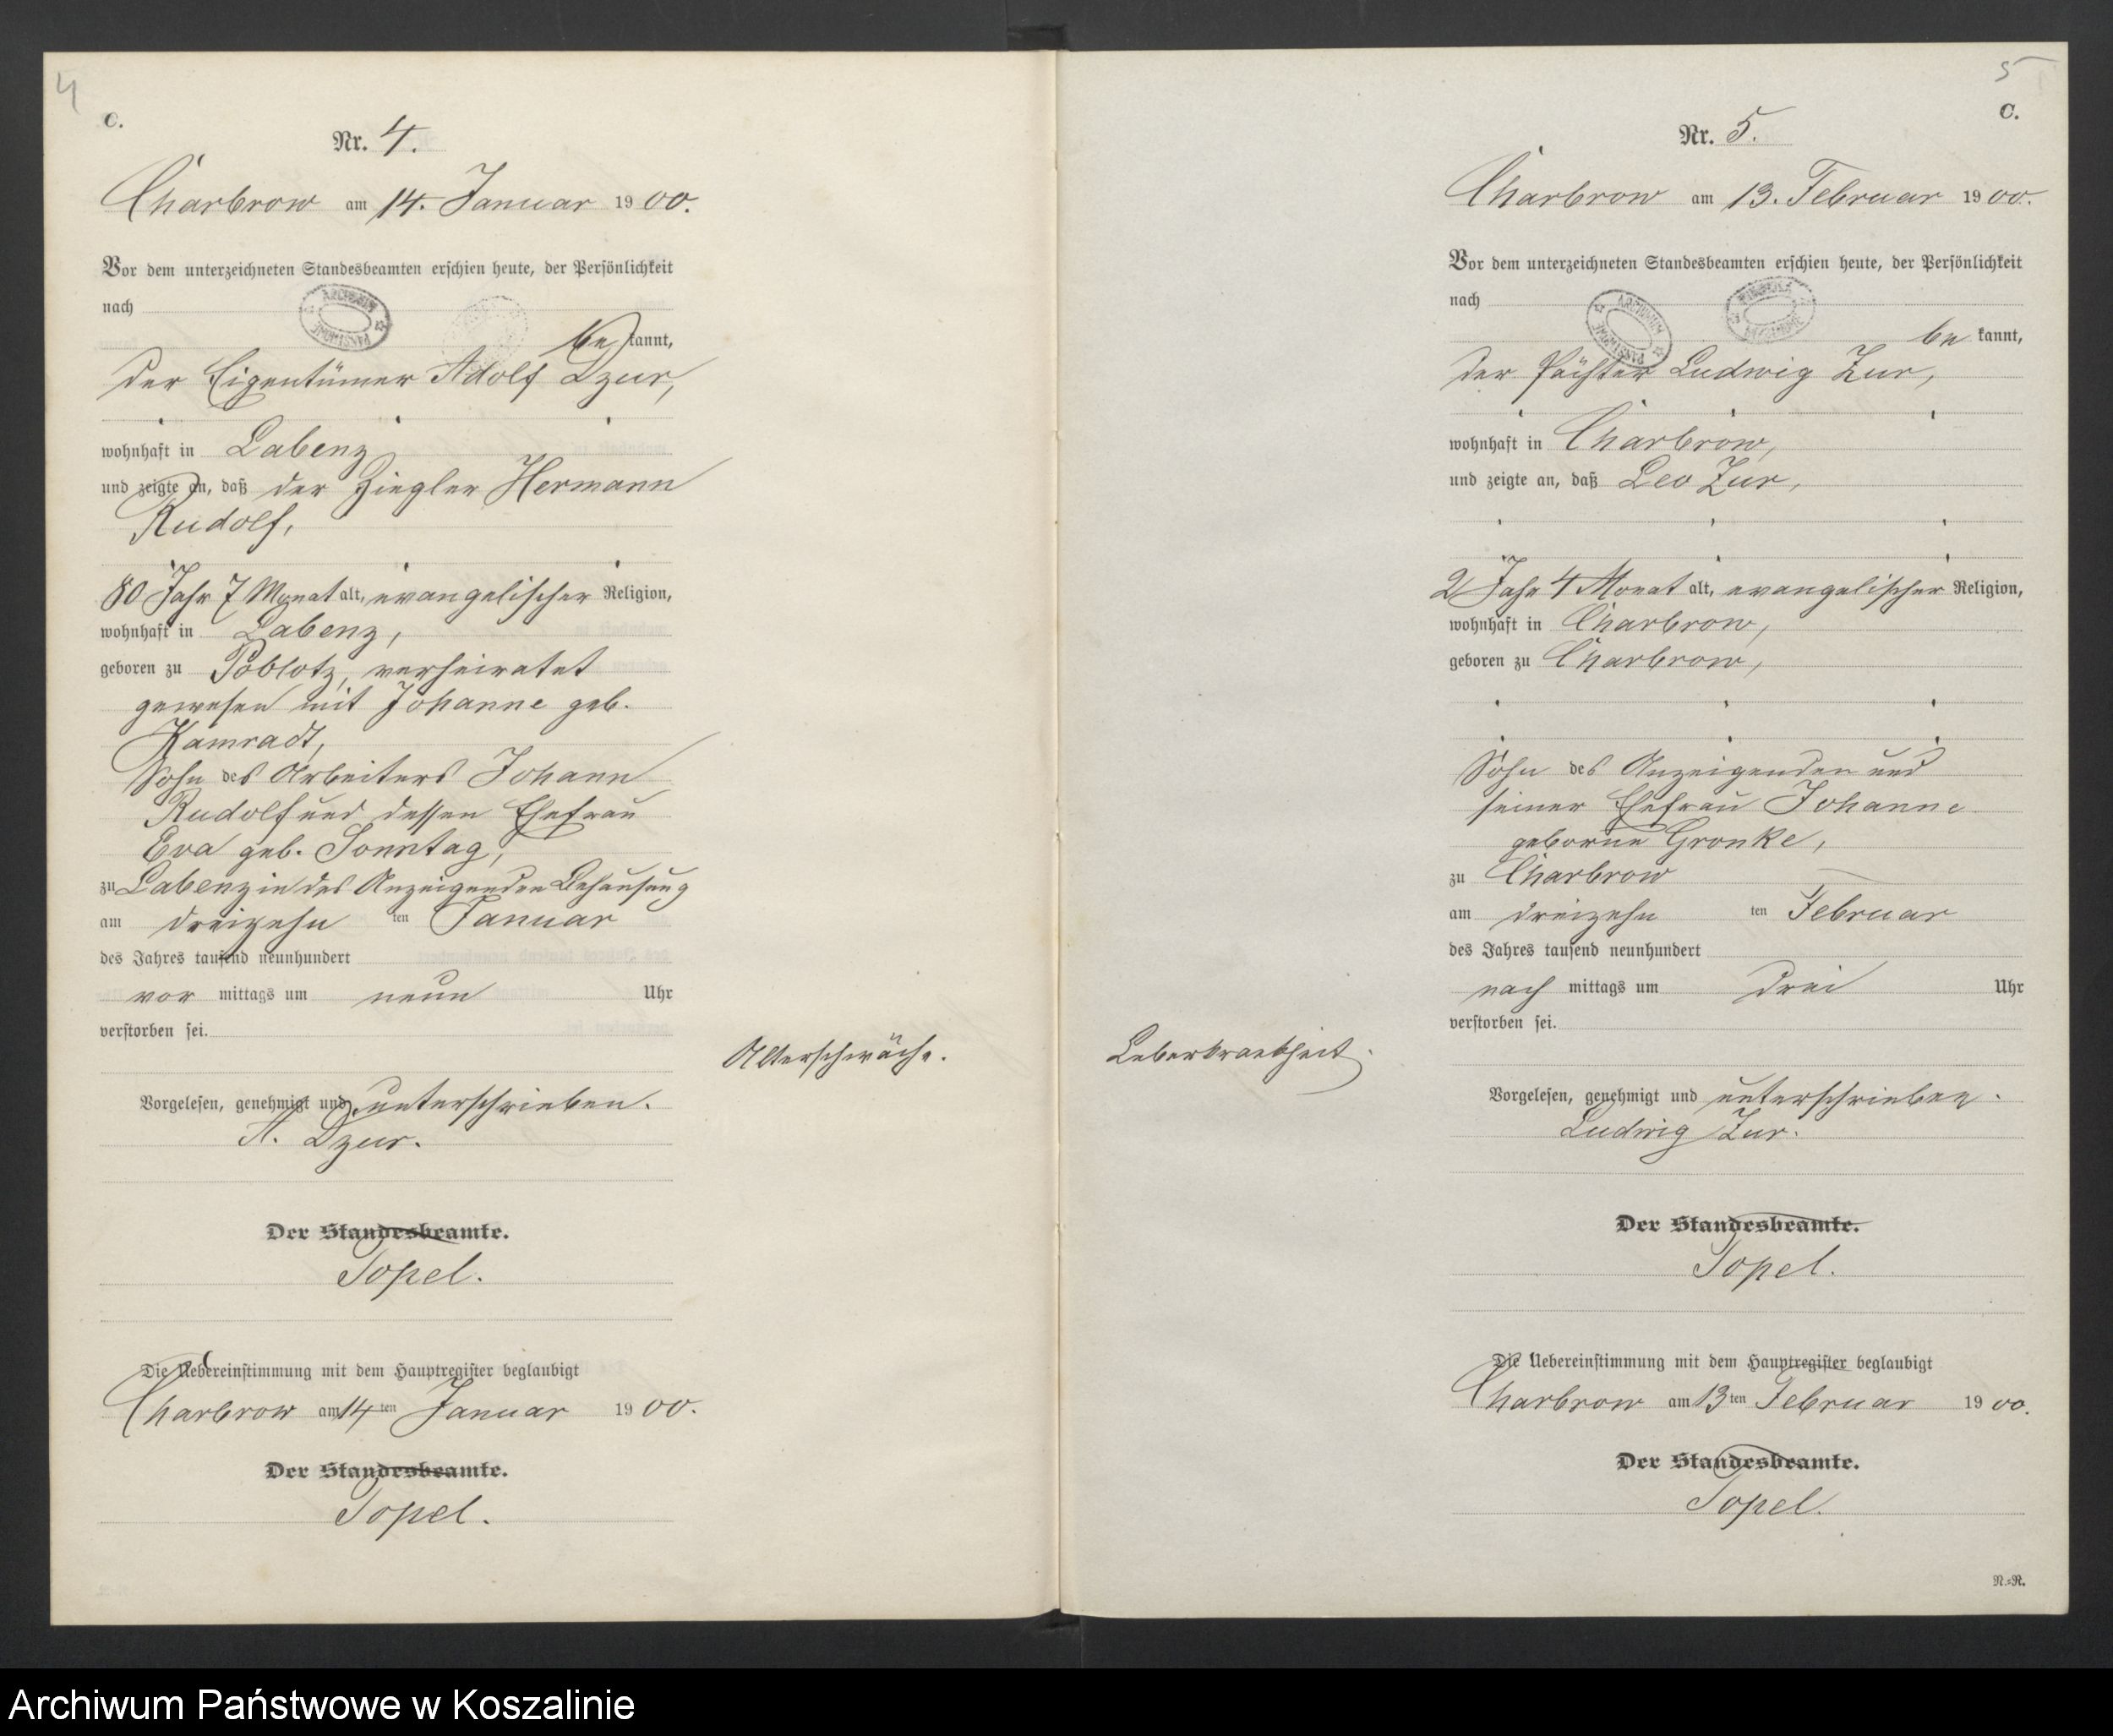 4
C.
Nr. 4.
Charbrow am 14. Januar 1900.
Vor dem unterzeichneten Standesbeamten erschien heute, der Persönlichkeit
nach
bekannt,
der Eigentümer Adolf Dzur,
wohnhaft in Labenz
und zeigte an, daß der Ziegler Hermann
Rudolf,
80 Jahr 7 Monat alt, evangelischer Religion,
wohnhaft in Labenz,
geboren zu Poblotz, verheiratet
gewesen mit Johanne geb.
Kamradt,
Sohn des Arbeiters Johann
Rudolf und dessen Ehefrau
Eva geb. Sonntag,
zu Labenz in des Anzeigenden Behausung
am dreizehnten Januar
des Jahres tausend neunhundert
vormittags um neun Uhr
verstorben sei.
Alterschwäche.
Vorgelesen, genehmigt und unterschrieben.
A. Dzur.
Der Standesbeamte.
Topel.
Die Uebereinstimmung mit dem Hauptregister beglaubigt
Charbrow am 14ten Januar 1900.
Der Standesbeamte.
Topel.
5
C.
Nr. 5.
Charbrow am 13. Februar 1900.
Vor dem unterzeichneten Standesbeamten erschien heute, der Persönlichkeit
nach
bekannt,
der Pächter Ludwig Zur,
wohnhaft in Charbrow,
und zeigte an, daß Leo Zur,
2 Jahr 4 Monat alt, evangelischer Religion,
wohnhaft in Charbrow,
geboren zu Charbrow,
Sohn des Anzeigenden und
seiner Ehefrau Johanne
geborne Gronke,
zu Charbrow
am dreizehnten Februar
des Jahres tausend neunhundert
nachmittags um drei Uhr
verstorben sei.
Leberkrankheit.
Vorgelesen, genehmigt und unterschrieben.
Ludwig Zur.
Der Standesbeamte.
Topel.
Die Uebereinstimmung mit dem Hauptregister beglaubigt
Charbrow am 13ten Februar 1900.
Der Standesbeamte.
Topel.
N.=R.
Archiwum Państwowe w Koszalinie